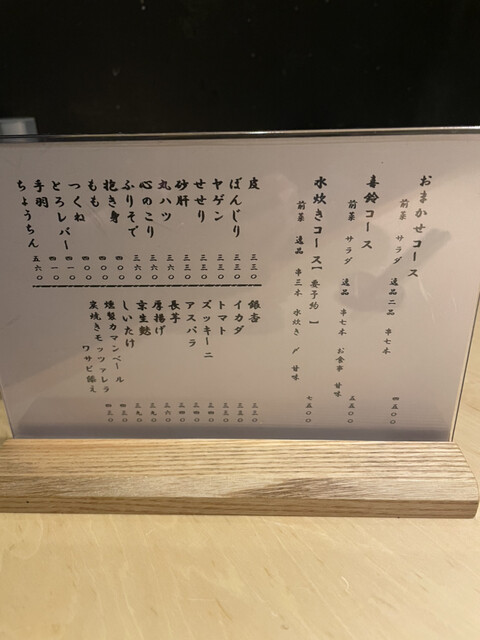 おまかせコース
前菜 サラダ 逸品二品 串七本 四五〇〇
喜鈴コース
前菜 サラダ 逸品 串七本 お食事 甘味 五五〇〇
水炊きコース【要予約】
前菜 逸品 串三本 水炊き 〆 甘味 七五〇〇
皮 三三〇
ぼんじり 三三〇
ヤゲン 三三〇
せせり 三三〇
砂肝 三三〇
丸ハツ 三六〇
心のこり 三六〇
ふりそで 三六〇
抱き身 四〇〇
もも 四〇〇
つくね 四〇〇
とろレバー 四一〇
手羽 四一〇
ちょうちん 五六〇
銀杏 三三〇
イカダ 三三〇
トマト 三三〇
ズッキーニ 三四〇
アスパラ 三四〇
長芋 三六〇
厚揚げ 三九〇
京生麩 三九〇
しいたけ 三九〇
燻製カマンベール 四三〇
炭焼きモッツァレラ 四三〇
ワサビ添え